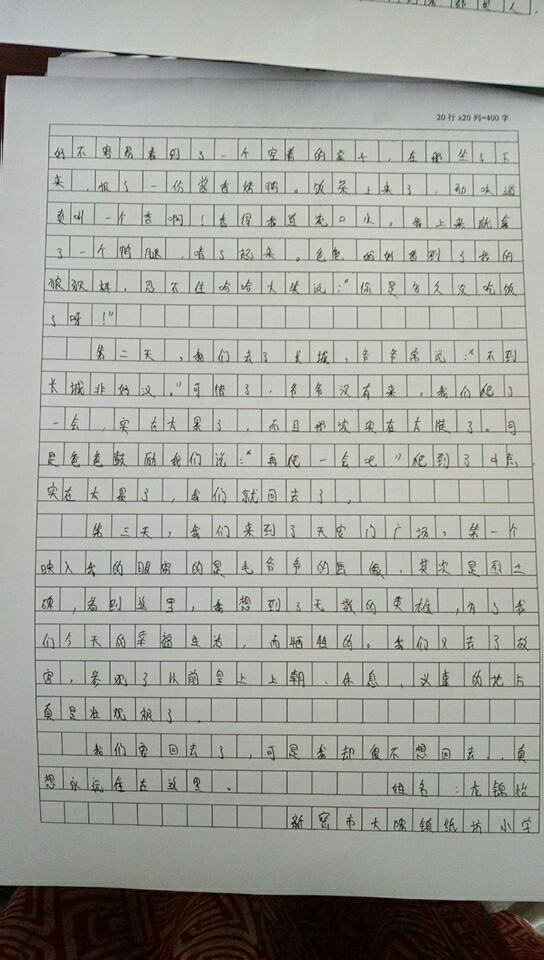 20行×20列=400字
好不容易看到了一个空着的桌子，在那坐了下
来，报了一份酱香烤鸭。饭菜上来了，那味道
真叫一个香啊！香得我直流口水。我上来就拿
了一个鸭腿，啃了起来。爸爸妈妈看到了我的
狼狈样，忍不住哈哈大笑说：“你是多久没吃饭
了呀！”
第二天，我们去了长城，爷爷常说：“不到
长城非好汉。”可惜了，爷爷没有来，我们爬了
一会，实在太累了，而且那次实在太陡了。可
是爸爸鼓励我们说：“再爬一会吧”爬到了中点，
实在太晃了，我们就回去了，
第三天，我们来到了天安门广场，第一个
映入我的眼帘的是毛爷爷的画像，其次是烈士
碑，看到这里，我想到了无数的英雄，有了我
们今天的幸福生活，而牺牲的。我们又去了故
宫，参观了以前皇上上朝、休息、议事的地方
真是壮观极了。
我们要回去了，可是我却很不想回去。真
想永远住在这里。 姓名：龙锦怡
新密市大隗镇纸坊小学